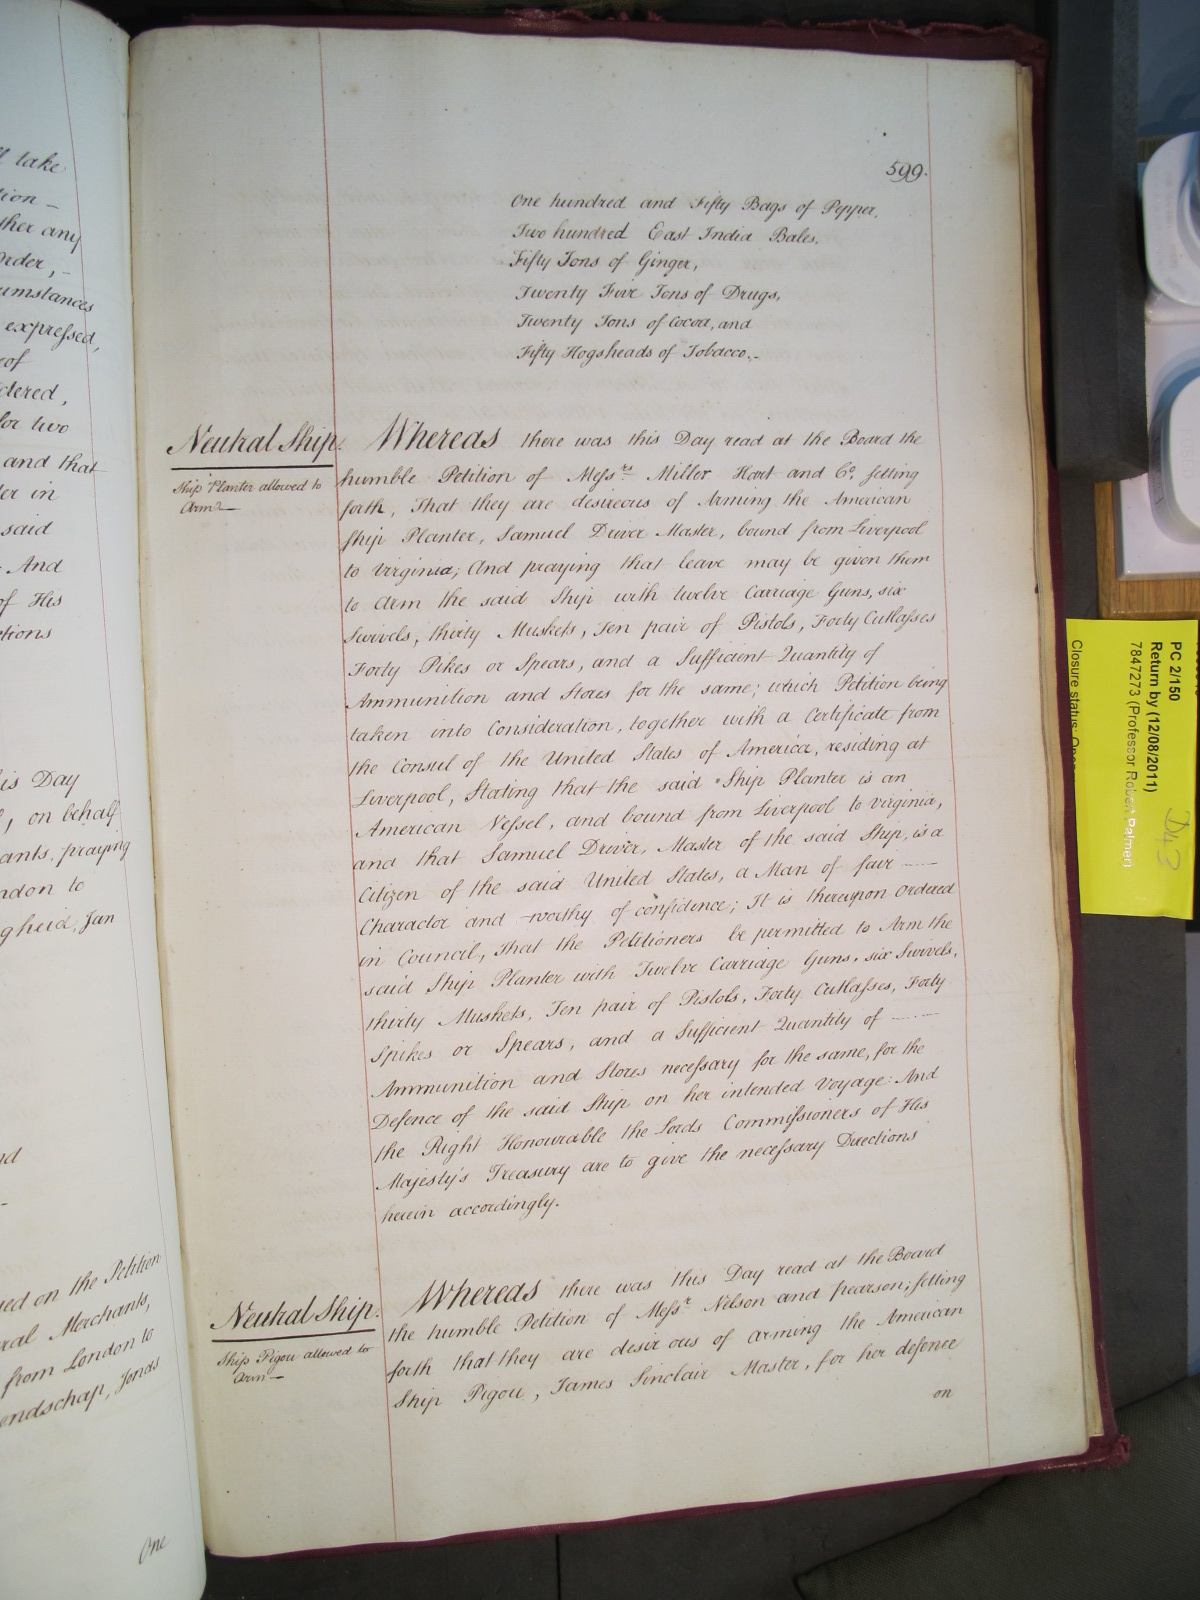 take
tion -
ther any
order, -
umstances
expressed,
eof
dered,
for two
and that
er in
said
And
of His
ctions
is Day
, on behalf
ants, praying
ndon to
Jan
nd
-
ed on the Petition
ral Merchants,
from London to
endschap, Jonas
One
599.
One hundred and Fifty Bags of Pepper,
Two hundred East India Bales,
Fifty Tons of Ginger,
Twenty Five Tons of Drugs,
Twenty Tons of Cocoa, and
Fifty Hogsheads of Tobacco.-
Neutral Ship.
Ship Planter allowed to
Arm—
Whereas there was this Day read at the Board the
humble Petition of Messrs. Miller Hart and Co. setting
forth, That they are desireous of Arming the American
Ship Planter, Samuel Driver Master, bound from Liverpool
to Virginia; And praying that leave may be given them
to Arm the said Ship with twelve Carriage Guns, six
Swivels, thirty Muskets, Ten pair of Pistols, Forty Cutlasses
Forty Pikes or Spears, and a Sufficient Quantity of
Ammunition and Stores for the same; which Petition being
taken into Consideration, together with a Certificate from
the Consul of the United States of America, residing at
Liverpool, Stating that the said Ship Planter is an
American Vessel, and bound from Liverpool to Virginia,
and that Samuel Driver, Master of the said Ship, is a
Citizen of the said United States, a Man of fair —
Character and worthy of confidence; It is thereupon Ordered
in Council, That the Petitioners be permitted to Arm the
said Ship Planter with Twelve Carriage Guns, six Swivels,
thirty Muskets, Ten pair of Pistols, Forty Cutlasses, Forty
Spikes or Spears, and a Sufficient Quantity of —
Ammunition and Stores necessary for the same, for the
Defence of the said Ship on her intended Voyage: And
the Right Honourable the Lords Commissioners of His
Majesty's Treasury are to give the necessary Directions
herein accordingly.
Neutral Ship.
Ship Pigou allowed to
Arm—
Whereas there was this Day read at the Board
the humble Petition of Messrs. Nelson and Pearson; setting
forth that they are desirous of arming the American
Ship Pigou, James Sinclair Master, for her defence
on
PC 2/150
Return by (12/08/2011)
7847273 (Professor Robert Palmer)
Closure status: Open
D43